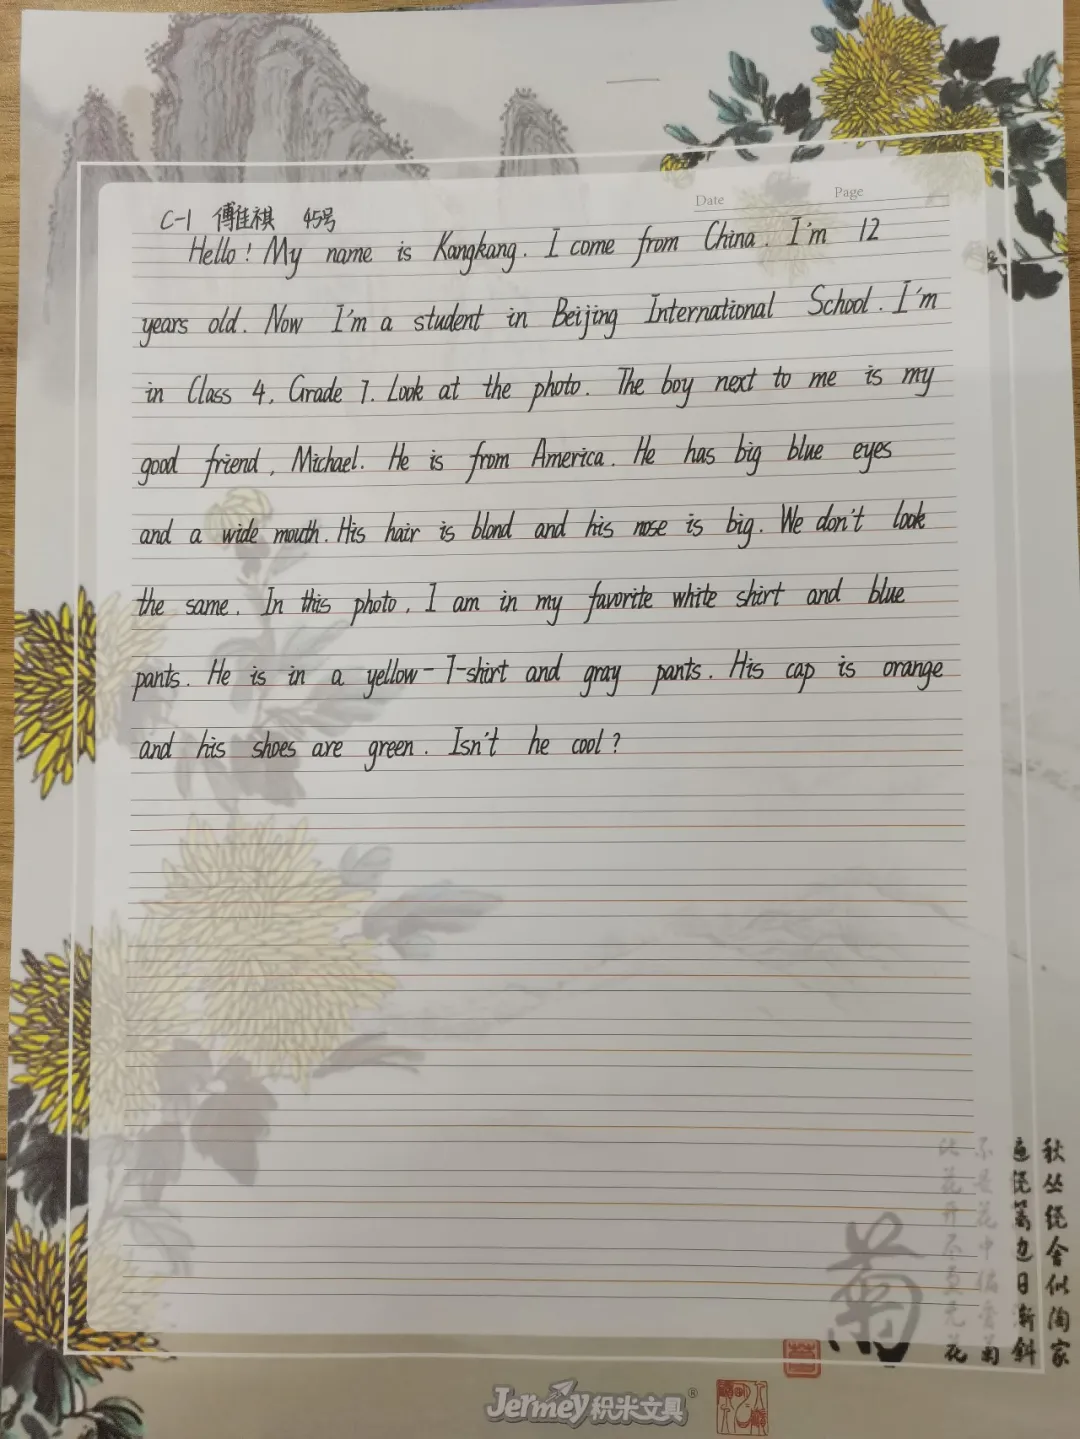 Date Page
C-1 傅佳祺 45号
Hello! My name is Kangkang. I come from China. I'm 12
years old. Now I'm a student in Beijing International School. I'm
in Class 4, Grade 7. Look at the photo. The boy next to me is my
good friend, Michael. He is from America. He has big blue eyes
and a wide mouth. His hair is blond and his nose is big. We don't look
the same. In this photo, I am in my favorite white shirt and blue
pants. He is in a yellow-T-shirt and gray pants. His cap is orange
and his shoes are green. Isn't he cool?
秋丛绕舍似陶家
遍绕篱边日渐斜
不是花中偏爱菊
此花开尽更无花
菊
Jermey积米文具®